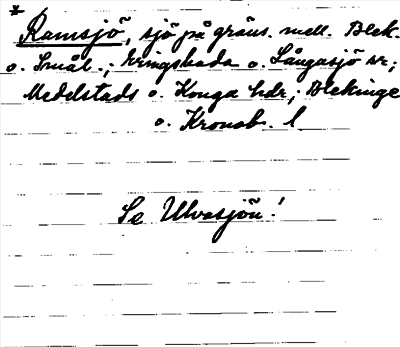 *
Ramsjö, sjö på gräns. mell. Blek.
o. Smål.; Tvingsbada o. Långasjö sr;
Medelstads o. Konga hdr; Blekinge
o. Kronob. l
Se Ulvasjön!